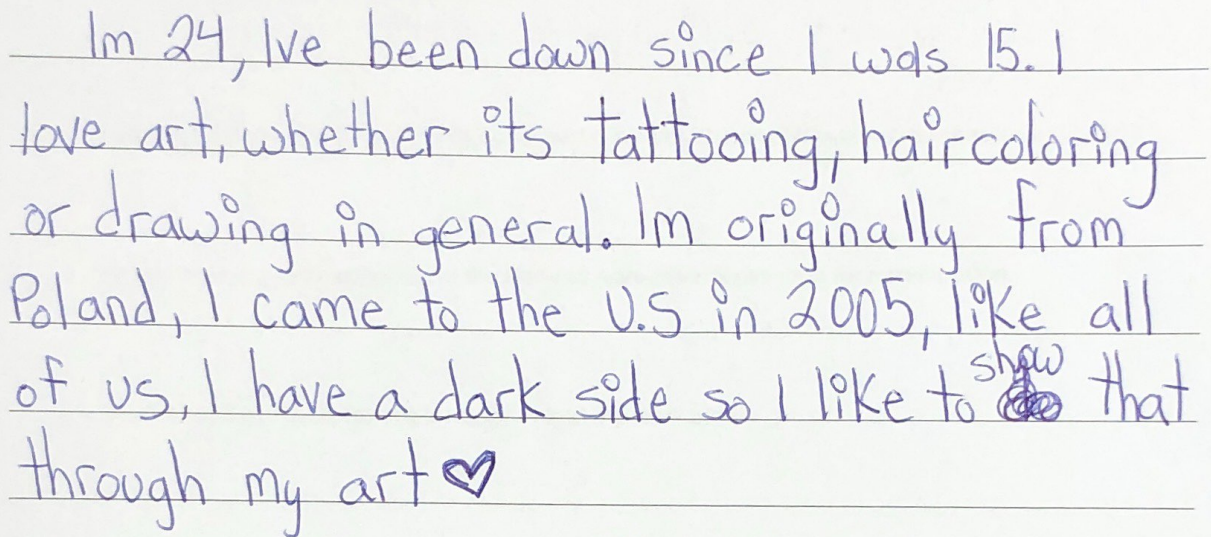 Im 24, Ive been down since I was 15. I
love art, whether its tattooing, haircoloring
or drawing in general. Im originally from
Poland, I came to the U.S in 2005, like all
of us, I have a dark side so I like to show that
through my art ♡